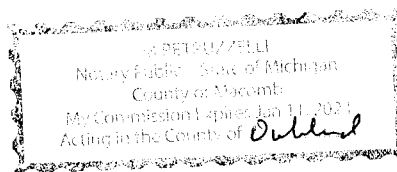 PETRUZZELLI
Notary Public - State of Michigan
County of Macomb
My Commission Expires Jun 11, 202
Acting in the County of Oakland